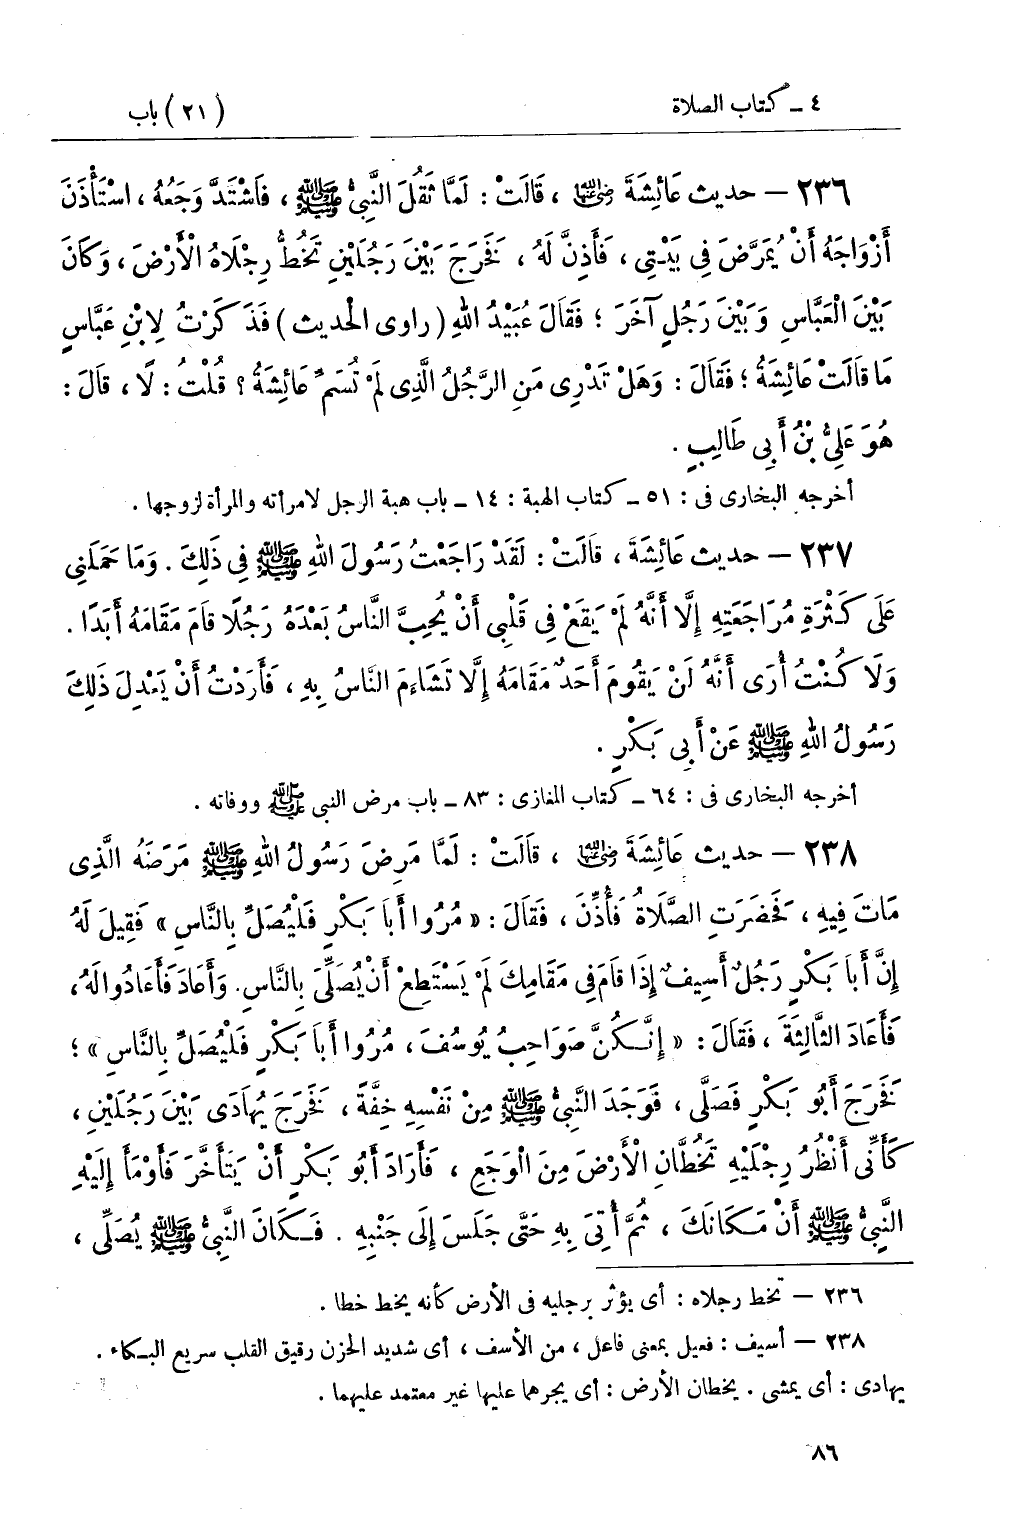 ٤ ـ كتاب الصلاة
(٢١) باب
٢٣٦ — حديث عَائِشَةَ رضي الله عنها ، قَالَتْ : لَمَّا ثَقُلَ النَّبِيُّ ﷺ ، فَاشْتَدَّ وَجَعُهُ ، اسْتَأْذَنَ
أَزْوَاجَهُ أَنْ يُمَرَّضَ فِى بَيْتِى ، فَأَذِنَّ لَهُ ، فَخَرَجَ بَيْنَ رَجُلَيْنِ تَخُطُّ رِجْلَاهُ الْأَرْضَ ، وَكَانَ
بَيْنَ الْعَبَّاسِ وَبَيْنَ رَجُلٍ آخَرَ ؛ فَقَالَ عُبَيْدُ اللهِ (راوى الحديث) فَذَكَرْتُ لِابْنِ عَبَّاسٍ
مَا قَالَتْ عَائِشَةُ ؛ فَقَالَ : وَهَلْ تَدْرِى مَنِ الرَّجُلُ الَّذِى لَمْ تُسَمِّ عَائِشَةُ ؟ قُلْتُ : لَا ، قَالَ :
هُوَ عَلِيُّ بْنُ أَبِى طَالِبٍ .
أخرجه البخارى فى : ٥١ ـ كتاب الهبة : ١٤ ـ باب هبة الرجل لامرأته والمرأة لزوجها .
٢٣٧ — حديث عَائِشَةَ ، قَالَتْ : لَقَدْ رَاجَعْتُ رَسُولَ اللهِ ﷺ فِى ذَلِكَ . وَمَا حَمَلَنِى
عَلَى كَثْرَةِ مُرَاجَعَتِهِ إِلَّا أَنَّهُ لَمْ يَقَعْ فِى قَلْبِى أَنْ يُحِبَّ النَّاسُ بَعْدَهُ رَجُلًا قَامَ مَقَامَهُ أَبَدًا .
وَلَا كُنْتُ أُرَى أَنَّهُ لَنْ يَقُومَ أَحَدٌ مَقَامَهُ إِلَّا تَشَاءَمَ النَّاسُ بِهِ ، فَأَرَدْتُ أَنْ يَعْدِلَ ذَلِكَ
رَسُولُ اللهِ ﷺ عَنْ أَبِى بَكْرٍ .
أخرجه البخارى فى : ٦٤ ـ كتاب المغازى : ٨٣ ـ باب مرض النبى ﷺ ووفاته .
٢٣٨ — حديث عَائِشَةَ رضي الله عنها ، قَالَتْ : لَمَّا مَرِضَ رَسُولُ اللهِ ﷺ مَرَضَهُ الَّذِى
مَاتَ فِيهِ ، فَحَضَرَتِ الصَّلَاةُ فَأُذِّنَ ، فَقَالَ : « مُرُوا أَبَا بَكْرٍ فَلْيُصَلِّ بِالنَّاسِ » فَقِيلَ لَهُ
إِنَّ أَبَا بَكْرٍ رَجُلٌ أَسِيفٌ إِذَا قَامَ فِى مَقَامِكَ لَمْ يَسْتَطِعْ أَنْ يُصَلِّىَ بِالنَّاسِ . وَأَعَادَ فَأَعَادُوا لَهُ ،
فَأَعَادَ الثَّالِثَةَ ، فَقَالَ : « إِنَّكُنَّ صَوَاحِبُ يُوسُفَ ، مُرُوا أَبَا بَكْرٍ فَلْيُصَلِّ بِالنَّاسِ » ؛
فَخَرَجَ أَبُو بَكْرٍ فَصَلَّى ، فَوَجَدَ النَّبِىُّ ﷺ مِنْ نَفْسِهِ خِفَّةً ، فَخَرَجَ يُهَادَى بَيْنَ رَجُلَيْنِ ،
كَأَنِّى أَنْظُرُ رِجْلَيْهِ تَخُطَّانِ الْأَرْضَ مِنَ الْوَجَعِ ، فَأَرَادَ أَبُو بَكْرٍ أَنْ يَتَأَخَّرَ فَأَوْمَأَ إِلَيْهِ
النَّبِىُّ ﷺ أَنْ مَكَانَكَ ، ثُمَّ أُتِىَ بِهِ حَتَّى جَلَسَ إِلَى جَنْبِهِ . فَكَانَ النَّبِىُّ ﷺ يُصَلِّى ،
٢٣٦ — تخط رجلاه : أى يؤثر برجليه فى الأرض كأنه يخط خطا .
٢٣٨ — أسيف : فعيل بمعنى فاعل ، من الأسف ، أى شديد الحزن رقيق القلب سريع البكاء .
يهادى : أى يمشى . يخطان الأرض : أى يجرهما عليها غير معتمد عليهما .
٨٦